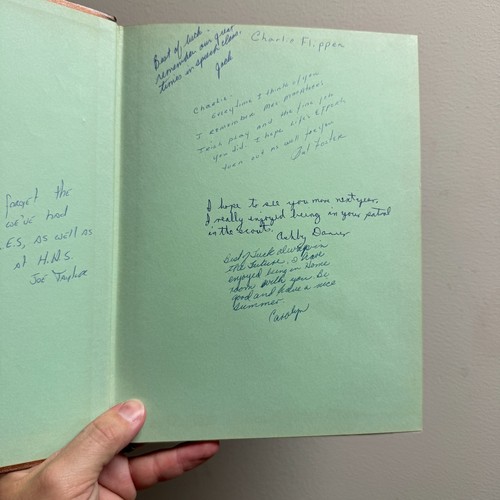 forget the
we've had
E.S, as well as
at H.N.S.
Joe Taylor
Best of luck -
remember our great
times in speech class.
Jack
Charlie Flippen
Charlie -
Everytime I think of you
I remember Mrs.
Irish play and the fine job
you did. I hope life's efforts
turn out as well for you
Foster
I hope to see you more next year.
I really enjoyed being in your patrol
in the scout.
Ashby
Best of luck always in
the future. I have
enjoyed being in Home
room with you. Be
good and have a nice
summer.
Carolyn